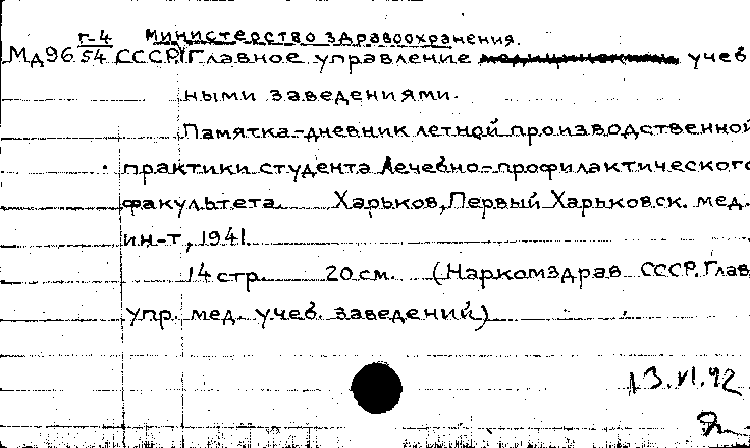 г-4 Министерство здравоохранения.
Мд96 54 СССР. Главное управление учеб
ными заведениями.
Памятка-дневник летной производственной
практики студента лечебно-профилактического
факультета. Харьков, Первый Харьковск. мед.
ин-т, 1941.
14 стр. 20 см. (Наркомздрав СССР. Глав
упр. мед. учеб. заведений)
13.VI.92